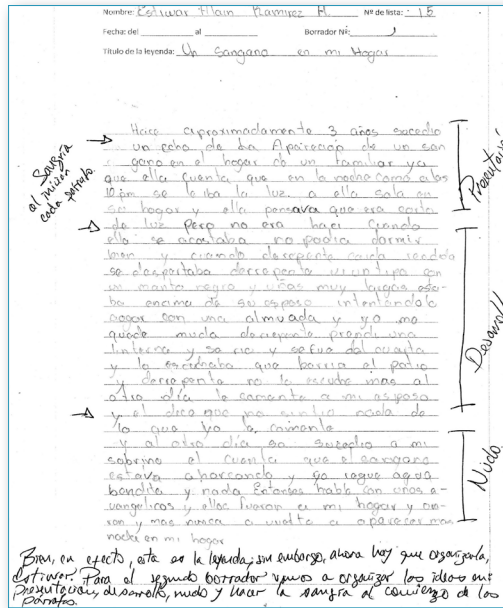 Nombre: Estiwar Alain Ramirez H. Nº de lista: 15
Fecha: del ____ al ____ Borrador Nº: 1
Título de la leyenda: Un Sangano en mi Hogar
Sangría
al inicio
cada párrafo.
Hace aproximadamente 3 años socedio
un echo de la Apairecion de un san
gano en el hogar de un familiar ya
que ella cuenta que en la noche como a las
10 pm se le iba la luz a ella sola en
su hogar y ella pensava que era corte
de luz pero no era haci Cuando
ella se acostaba no podia dormir
bien y cuando derepente caida rendida
se despertaba derrepente vi un tipo con
un manto negro y uñas muy largas esta-
ba encima de su esposo intentandolo
aogar con una almuada y yo me
quede muda derrepente prendi una
linterna y se rio y se fue del cuarto
y lo escuchaba que barria el patio
y derrepente no lo escuche mas al
otro dia le comente a mi esposo
y el dice que no sintio nada de
lo que yo le
y al otro dia se socedio a mi
sobrino el cuenta que el sangano
estava ahorcando y yo agua
bendita y nada Entonses hable con unos e-
vangelicos y ellos fueron a mi hogar y ora-
ron y mas nunca a vuelto a aparecer mas
nada en mi hogar
Presentación
Desarrollo
Nudo.
Bien, en efecto, esta es la leyenda, sin embargo, ahora hay que organizarla,
Estiwar. Para el segundo borrador vamos a organizar las ideas en:
presentación, desarrollo, nudo y hacer la sangría al comienzo de los
párrafos.